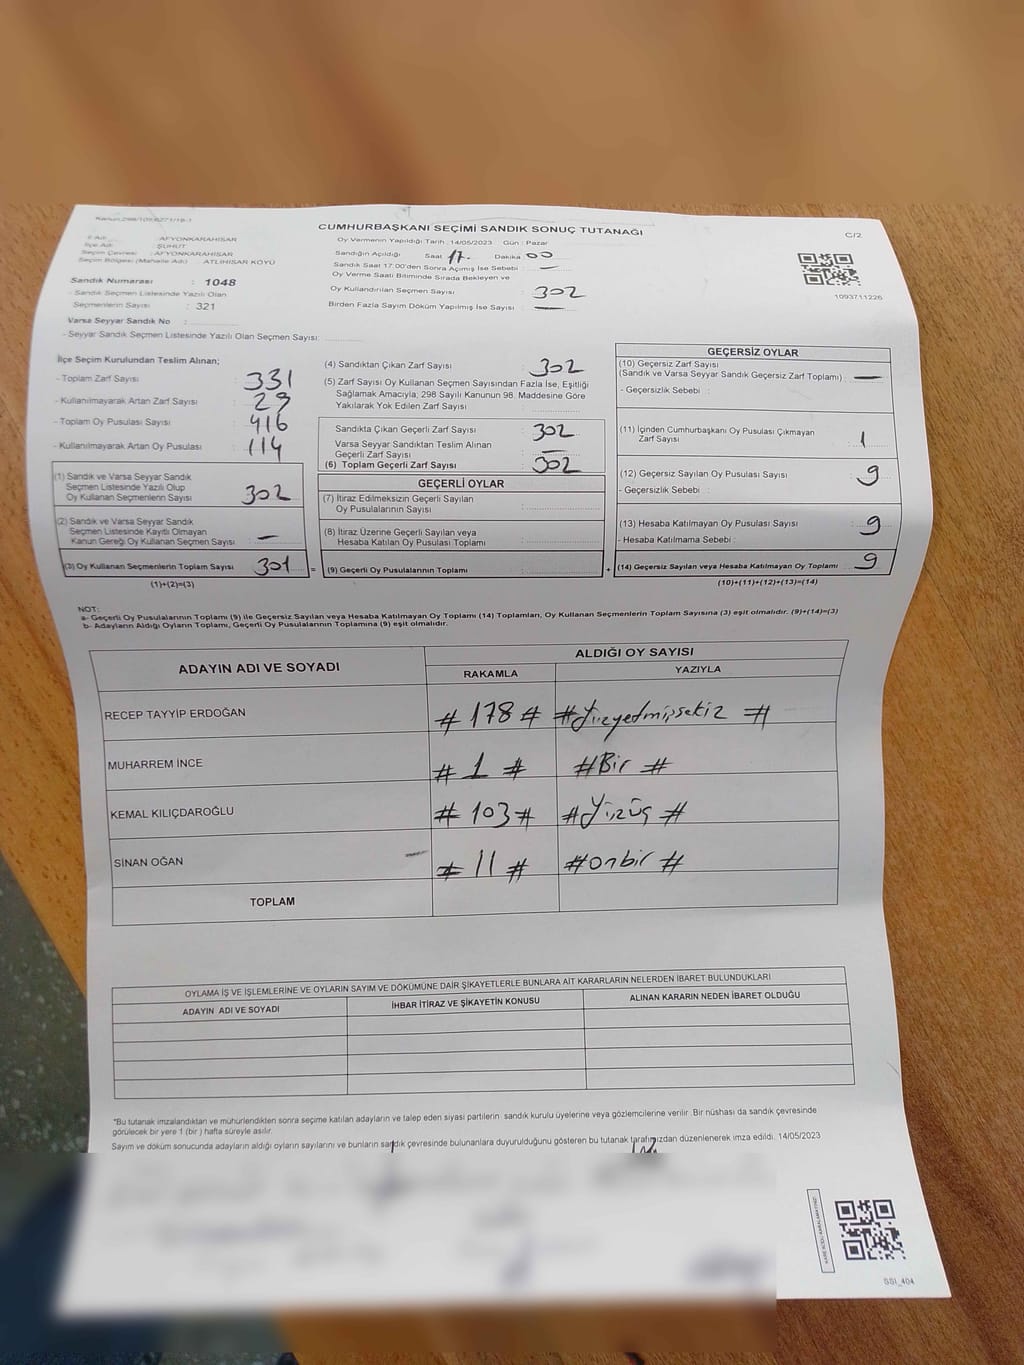 Kanun:298/105,6271/19-1
CUMHURBAŞKANI SEÇİMİ SANDIK SONUÇ TUTANAĞI
C/2
İl Adı : AFYONKARAHİSAR
İlçe Adı : ŞUHUT
Seçim Çevresi : AFYONKARAHİSAR
Seçim Bölgesi (Mahalle Adı) : ATLIHİSAR KÖYÜ
Sandık Numarası : 1048
- Sandık Seçmen Listesinde Yazılı Olan
Seçmenlerin Sayısı : 321
Varsa Seyyar Sandık No :
- Seyyar Sandık Seçmen Listesinde Yazılı Olan Seçmen Sayısı:
Oy Vermenin Yapıldığı Tarih :14/05/2023 Gün : Pazar
Sandığın Açıldığı Saat 17 Dakika 00
Sandık Saat 17:00'den Sonra Açılmış İse Sebebi : —
Oy Verme Saati Bitiminde Sırada Bekleyen ve
Oy Kullandırılan Seçmen Sayısı : 302
Birden Fazla Sayım Döküm Yapılmış İse Sayısı : —
1093711226
İlçe Seçim Kurulundan Teslim Alınan;
- Toplam Zarf Sayısı : 331
- Kullanılmayarak Artan Zarf Sayısı : 29
- Toplam Oy Pusulası Sayısı : 416
- Kullanılmayarak Artan Oy Pusulası : 114
(1) Sandık ve Varsa Seyyar Sandık
Seçmen Listesinde Yazılı Olup
Oy Kullanan Seçmenlerin Sayısı 302
(2) Sandık ve Varsa Seyyar Sandık
Seçmen Listesinde Kayıtlı Olmayan
Kanun Gereği Oy Kullanan Seçmen Sayısı : —
(3) Oy Kullanan Seçmenlerin Toplam Sayısı 301 =
(1)+(2)=(3)
(4) Sandıktan Çıkan Zarf Sayısı : 302
(5) Zarf Sayısı Oy Kullanan Seçmen Sayısından Fazla İse, Eşitliği
Sağlamak Amacıyla; 298 Sayılı Kanunun 98. Maddesine Göre
Yakılarak Yok Edilen Zarf Sayısı :
Sandıkta Çıkan Geçerli Zarf Sayısı : 302
Varsa Seyyar Sandıktan Teslim Alınan
Geçerli Zarf Sayısı : —
(6) Toplam Geçerli Zarf Sayısı : 302
GEÇERLİ OYLAR
(7) İtiraz Edilmeksizin Geçerli Sayılan
Oy Pusulalarının Sayısı :
(8) İtiraz Üzerine Geçerli Sayılan veya
Hesaba Katılan Oy Pusulası Toplamı :
(9) Geçerli Oy Pusulalarının Toplamı : +
GEÇERSİZ OYLAR
(10) Geçersiz Zarf Sayısı
(Sandık ve Varsa Seyyar Sandık Geçersiz Zarf Toplamı) : —
- Geçersizlik Sebebi :
(11) İçinden Cumhurbaşkanı Oy Pusulası Çıkmayan
Zarf Sayısı : 1
(12) Geçersiz Sayılan Oy Pusulası Sayısı : 9
- Geçersizlik Sebebi :
(13) Hesaba Katılmayan Oy Pusulası Sayısı : 9
- Hesaba Katılmama Sebebi :
(14) Geçersiz Sayılan veya Hesaba Katılmayan Oy Toplamı : 9
(10)+(11)+(12)+(13)=(14)
NOT:
a- Geçerli Oy Pusulalarının Toplamı (9) ile Geçersiz Sayılan veya Hesaba Katılmayan Oy Toplamı (14) Toplamları, Oy Kullanan Seçmenlerin Toplam Sayısına (3) eşit olmalıdır. (9)+(14)=(3)
b- Adayların Aldığı Oyların Toplamı, Geçerli Oy Pusulalarının Toplamına (9) eşit olmalıdır.
ADAYIN ADI VE SOYADI
ALDIĞI OY SAYISI
RAKAMLA YAZIYLA
RECEP TAYYİP ERDOĞAN # 178 # #Yüzyetmişsekiz #
MUHARREM İNCE # 1 # #Bir #
KEMAL KILIÇDAROĞLU # 103 # #Yüzüç #
SİNAN OĞAN # 11 # #onbir #
TOPLAM
OYLAMA İŞ VE İŞLEMLERİNE VE OYLARIN SAYIM VE DÖKÜMÜNE DAİR ŞİKAYETLERLE BUNLARA AİT KARARLARIN NELERDEN İBARET BULUNDUKLARI
ADAYIN ADI VE SOYADI İHBAR İTİRAZ VE ŞİKAYETİN KONUSU ALINAN KARARIN NEDEN İBARET OLDUĞU
*Bu tutanak imzalandıktan ve mühürlendikten sonra seçime katılan adayların ve talep eden siyasi partilerin sandık kurulu üyelerine veya gözlemcilerine verilir. Bir nüshası da sandık çevresinde
görülecek bir yere 1 (bir ) hafta süreyle asılır.
Sayım ve döküm sonucunda adayların aldığı oyların sayılarını ve bunların sandık çevresinde bulunanlara duyurulduğunu gösteren bu tutanak tarafımızdan düzenlenerek imza edildi. 14/05/2023
SSI_404